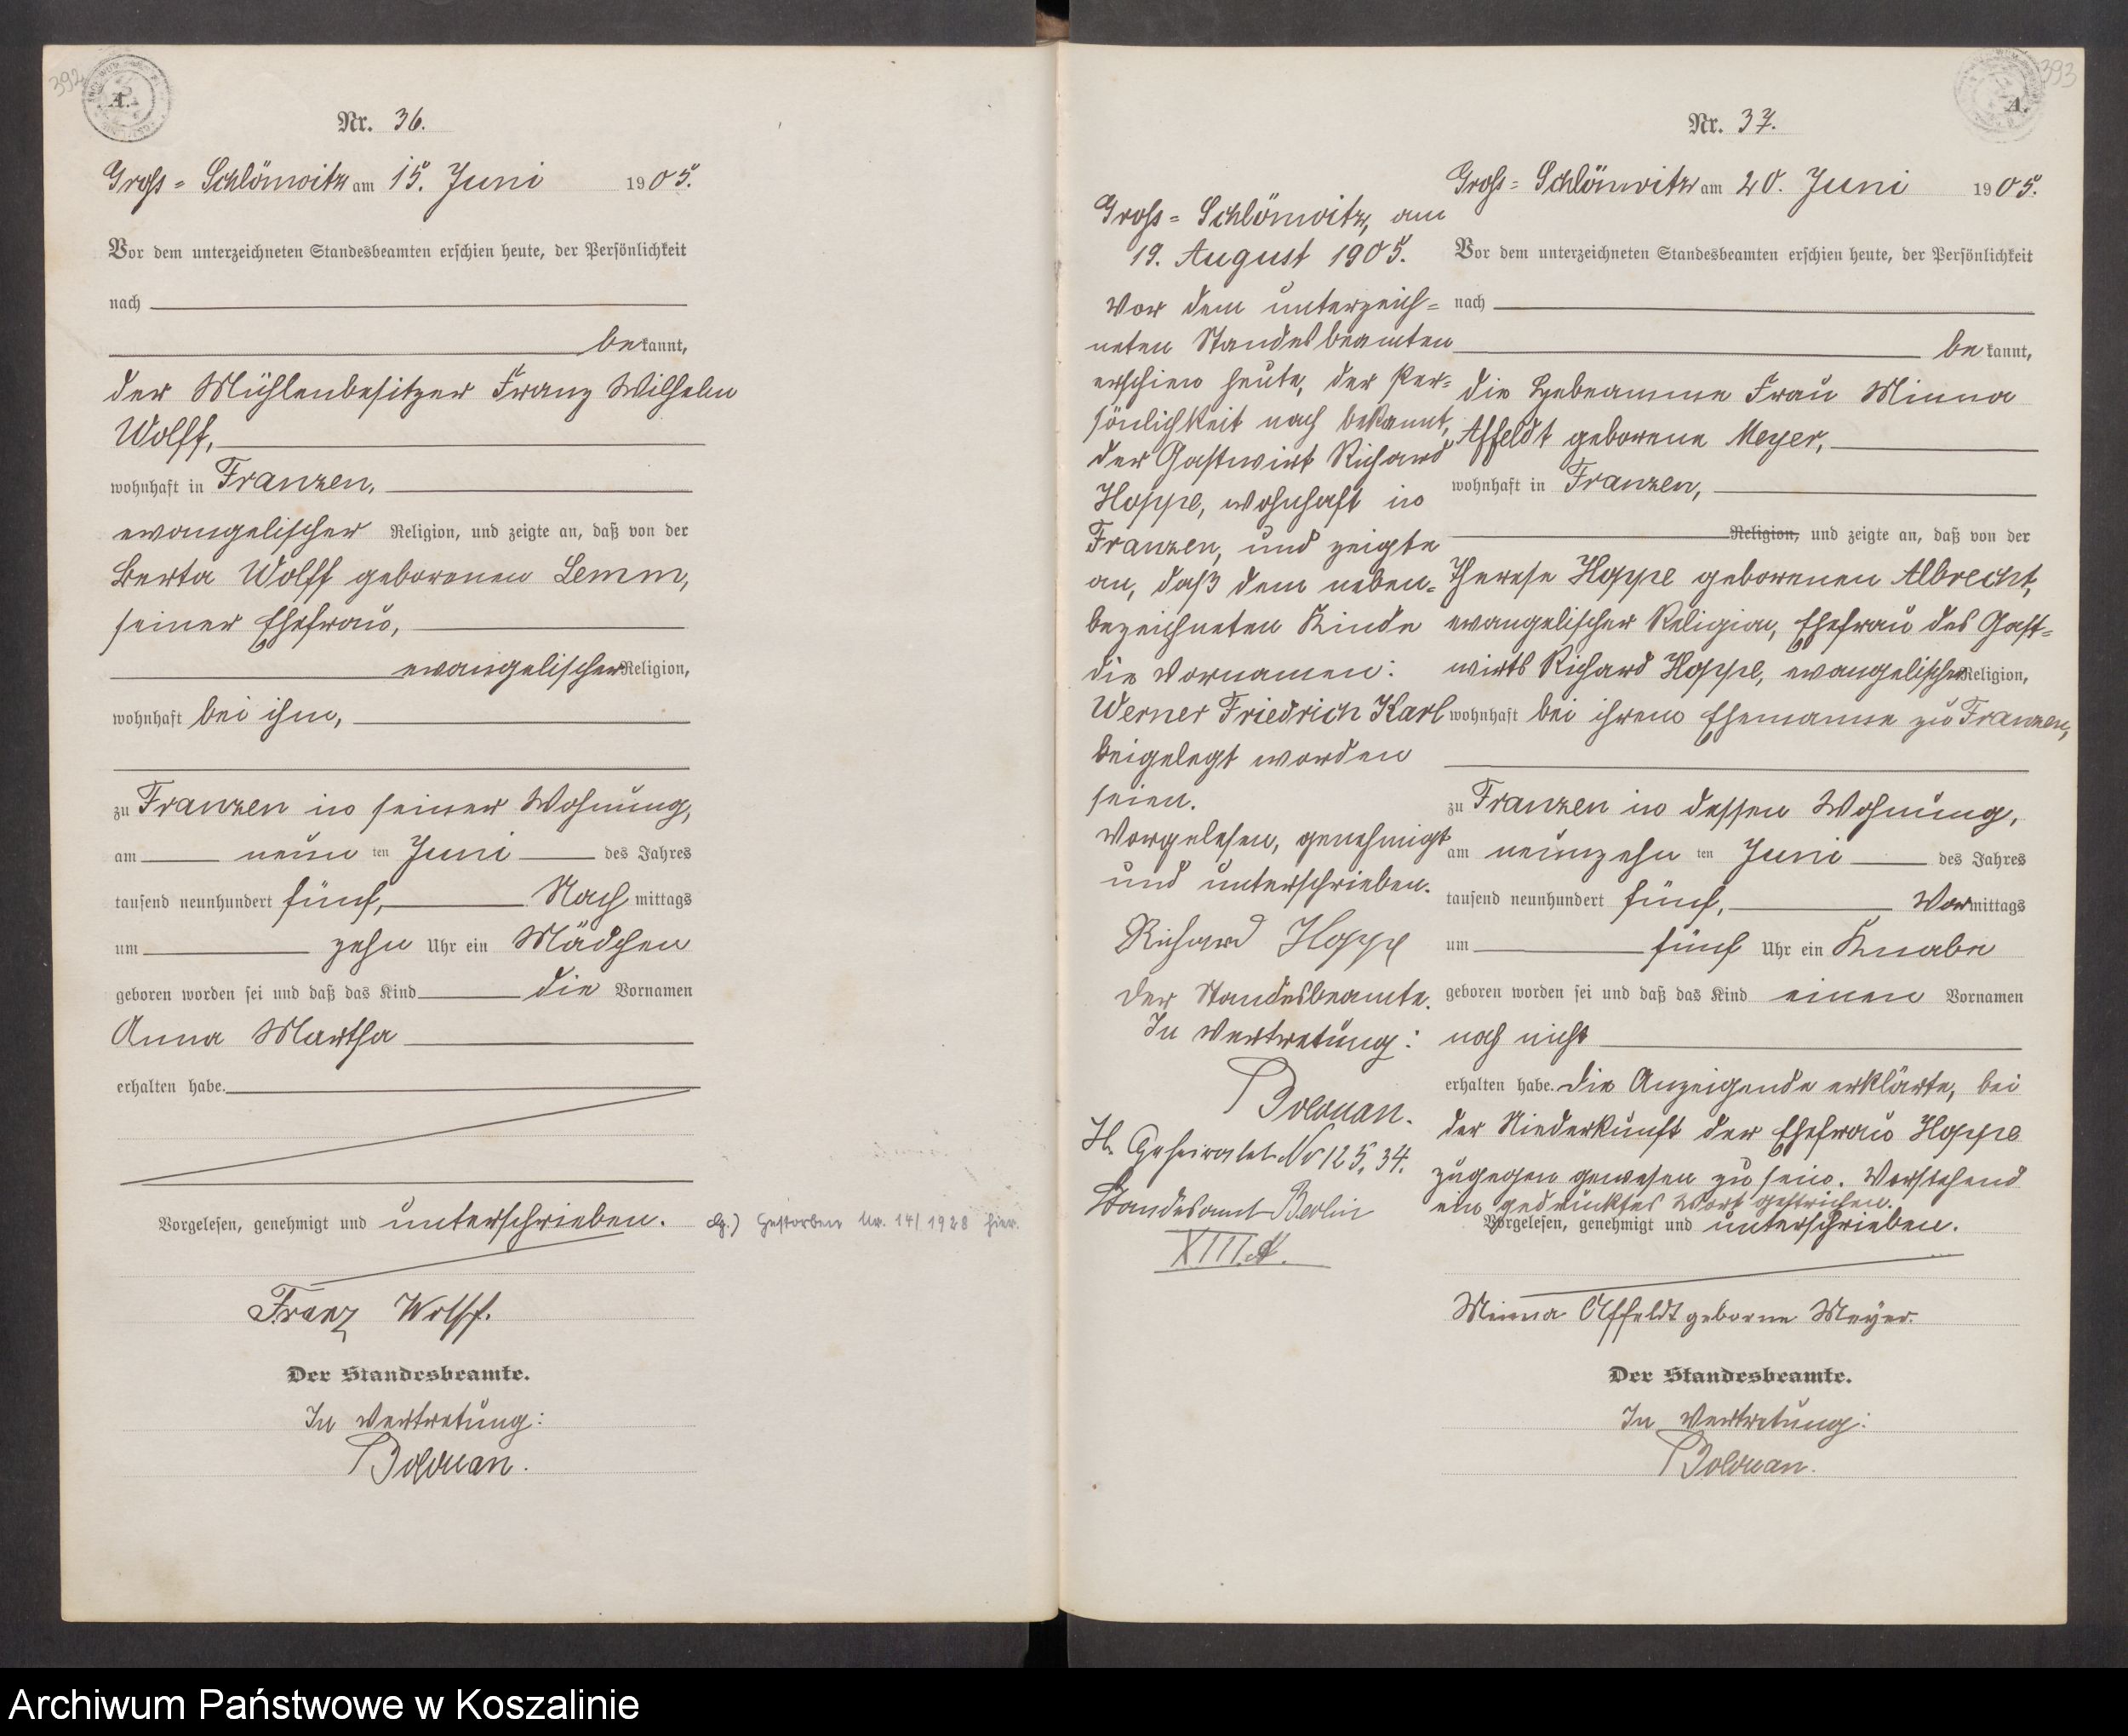 392
A.
Nr. 36.
Gross=Schlönwitz am 15. Juni 1905.
Vor dem unterzeichneten Standesbeamten erschien heute, der Persönlichkeit
nach
bekannt,
der Mühlenbesitzer Franz Wilhelm
Wolff,
wohnhaft in Franzen,
evangelischer Religion, und zeigte an, daß von der
Berta Wolff geborenen Lemm,
seiner Ehefrau,
evangelischer Religion,
wohnhaft bei ihm,
zu Franzen in seiner Wohnung,
am neunten Juni des Jahres
tausend neunhundert fünf, Nachmittags
um zehn Uhr ein Mädchen
geboren worden sei und daß das Kind die Vornamen
Anna Martha
erhalten habe.
Vorgelesen, genehmigt und unterschrieben.
Gestorben Nr. 14/1928 hier.
Franz Wolff.
Der Standesbeamte.
In Vertretung:
393
A.
Nr. 37.
Gross=Schlönwitz am 20. Juni 1905.
Vor dem unterzeichneten Standesbeamten erschien heute, der Persönlichkeit
nach
bekannt,
die Hebeamme Frau Minna
Affeldt geborene Meyer,
wohnhaft in Franzen,
Religion, und zeigte an, daß von der
Therese Hoppe geborenen Albrecht,
evangelischer Religion, Ehefrau des Gast=
wirts Richard Hoppe, evangelischer Religion,
wohnhaft bei ihrem Ehemanne zu Franzen,
zu Franzen in dessen Wohnung,
am neunzehnten Juni des Jahres
tausend neunhundert fünf, Vormittags
um fünf Uhr ein Knabe
geboren worden sei und daß das Kind einen Vornamen
noch nicht
erhalten habe. Die Anzeigende erklärte, bei
der Niederkunft der Ehefrau Hoppe
zugegen gewesen zu sein. Vorstehend
ein gedrucktes Wort gestrichen.
Vorgelesen, genehmigt und unterschrieben.
Minna Affeldt geborne Meyer.
Der Standesbeamte.
In Vertretung:
Gross=Schlönwitz, am
19. August 1905.
Vor dem unterzeich=
neten Standesbeamten
erschien heute, der Per=
sönlichkeit nach bekannt,
der Gastwirt Richard
Hoppe, wohnhaft in
Franzen, und zeigte
an, daß dem neben=
bezeichneten Kinde
die Vornamen:
Werner Friedrich Karl
beigelegt worden
seien.
Vorgelesen, genehmigt
und unterschrieben.
Richard Hoppe
Der Standesbeamte.
In Vertretung:
Geheiratet Nr 125, 34.
Standesamt Berlin
XIII.A.
Archiwum Państwowe w Koszalinie